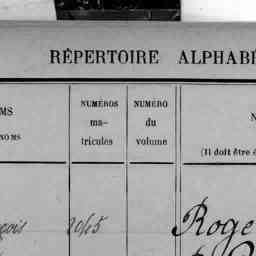 RÉPERTOIRE ALPHABÉ
MS
NOMS
NUMÉROS
ma-
tricules
NUMÉRO
du
volume
N
(Il doit être é
çois 2045 Roge